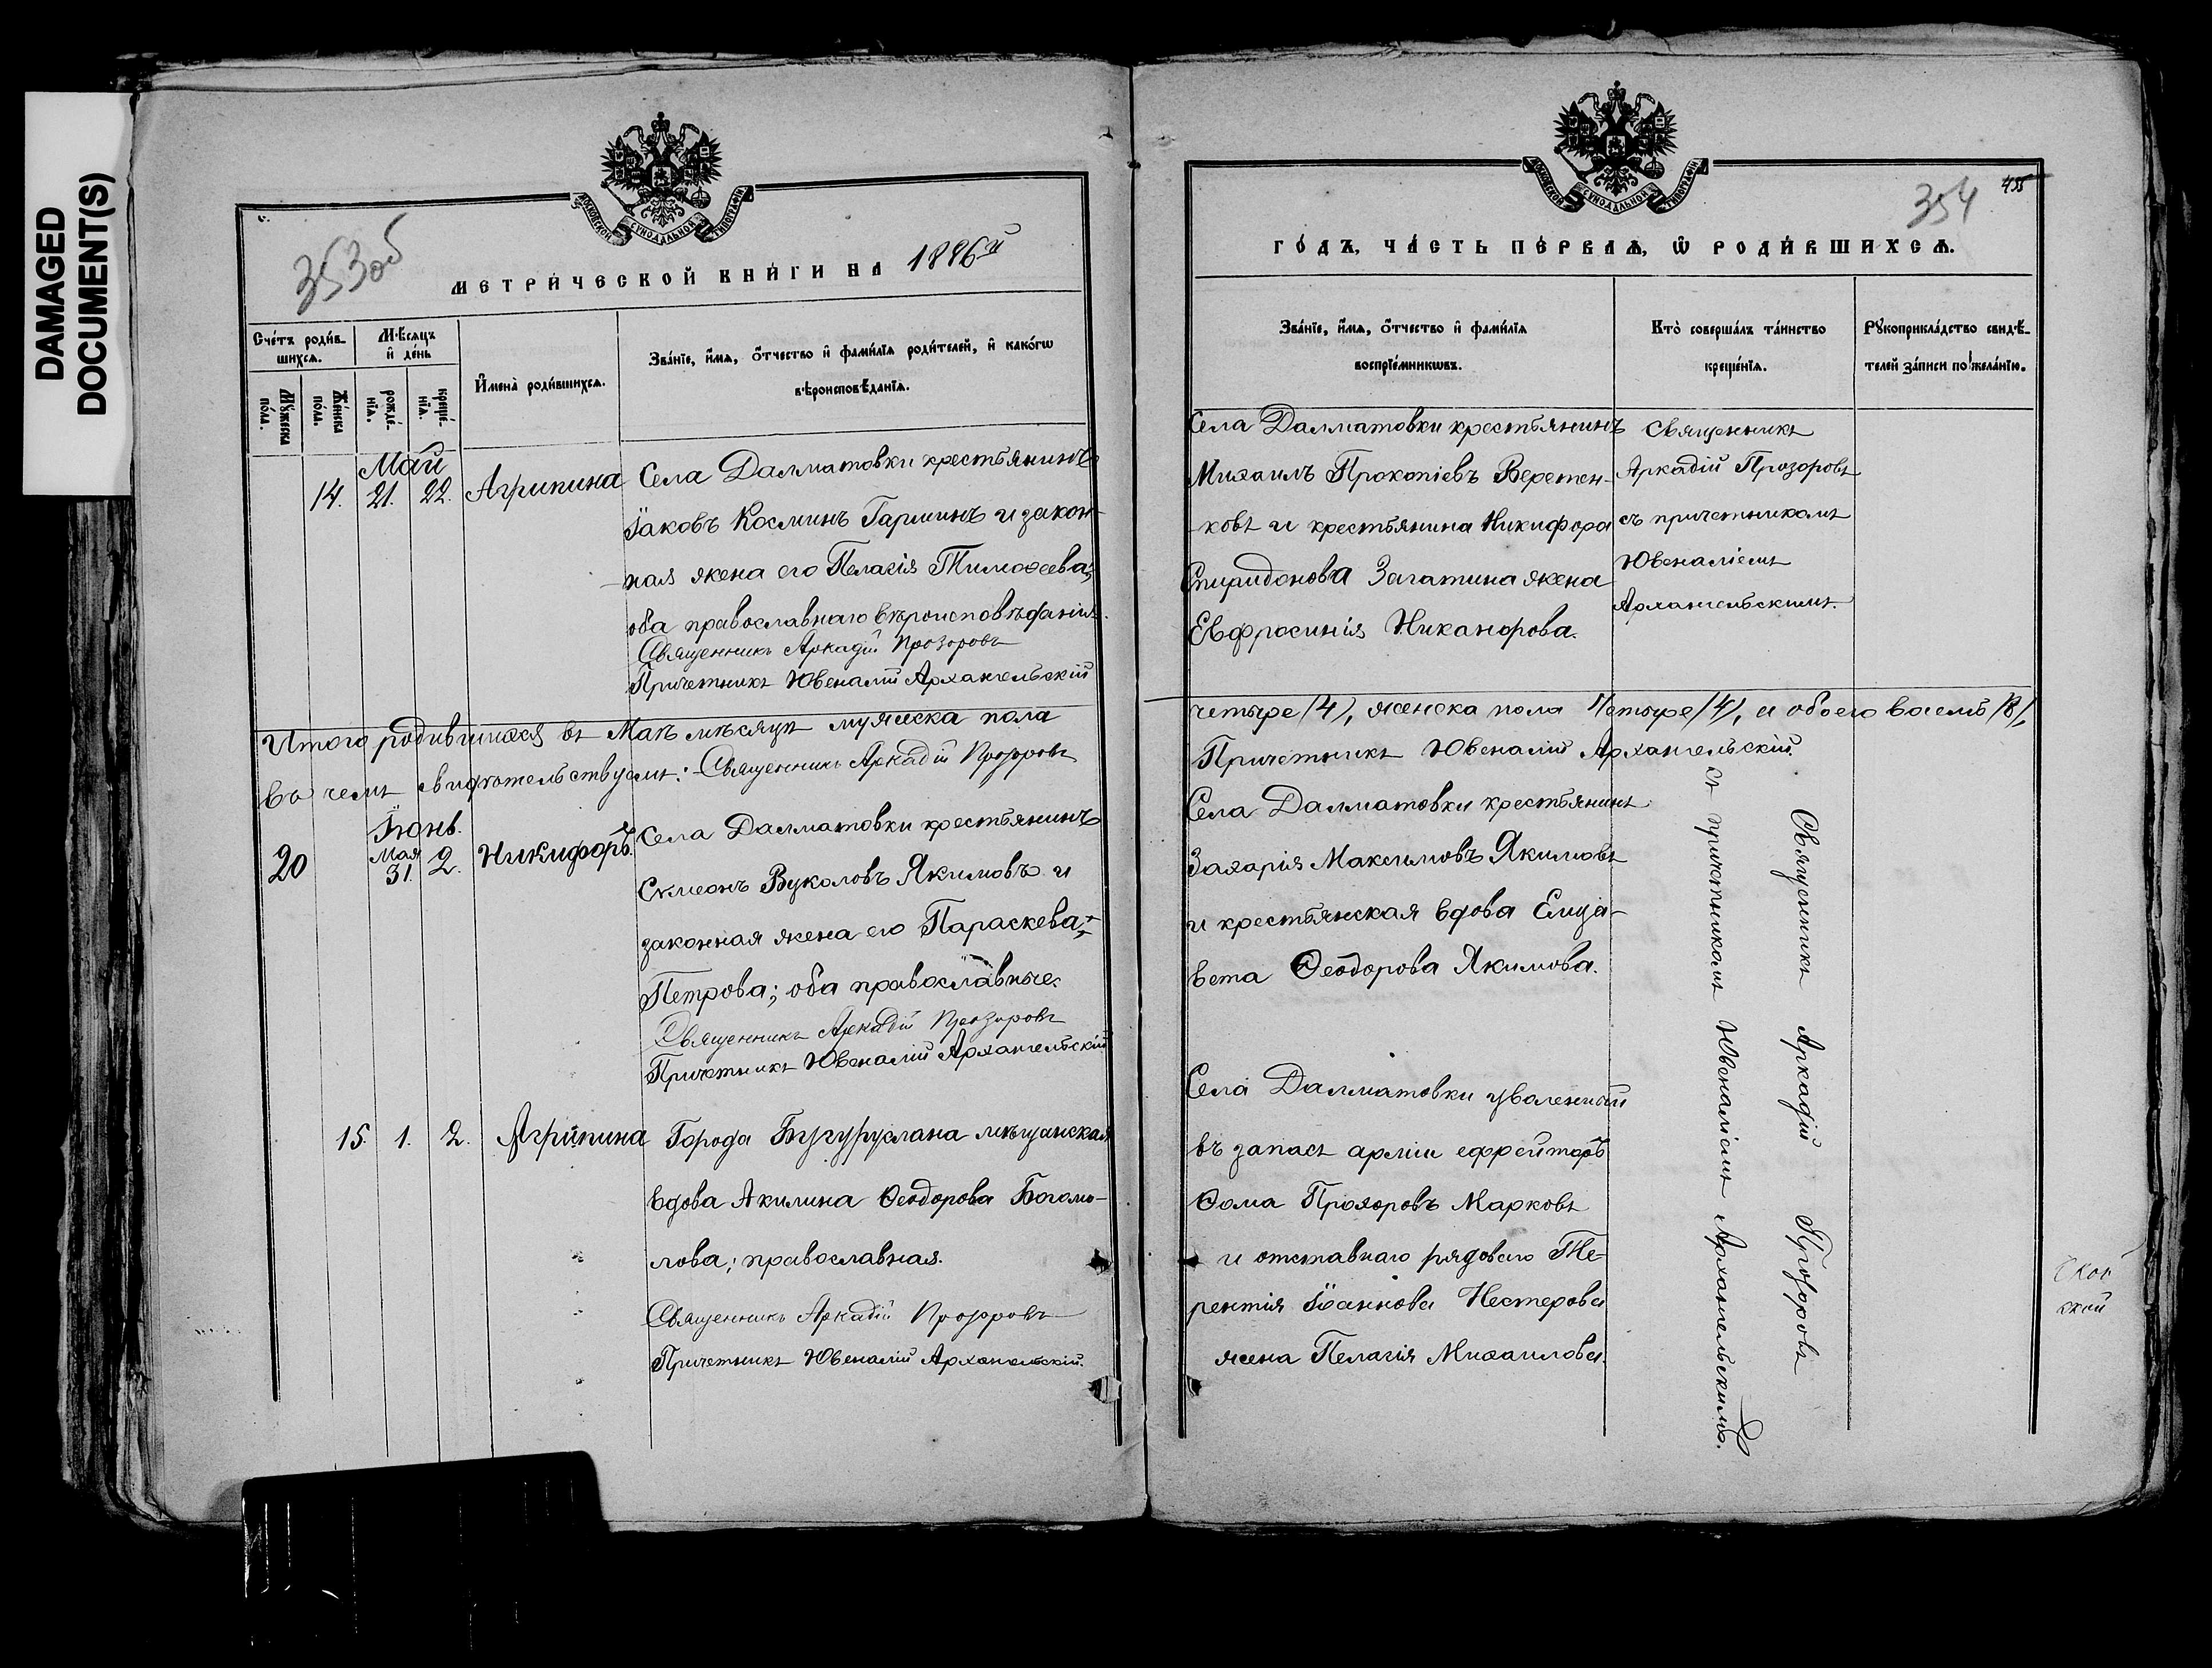 DAMAGED
DOCUMENT(S)
МОСКОВСКОЙ СѴНОДАЛЬНОЙ ТИПОГРАФІИ
353об
МЕТРИ́ЧЕСКОЙ КНИ́ГИ НА 1886й
Сче́тъ роди́в-
шихсѧ.
Мѣ́сѧцъ
и҆ де́нь
Мꙋ́жеска
по́ла.
Же́нска
по́ла.
рожде́-
нїѧ.
креще́-
нїѧ.
И҆мена̀ роди́вшихсѧ.
Зва́нїе, и҆́мѧ, ѻ҆́тчество и҆ фамѝлїѧ роди́телей, и҆ како́гѡ
вѣроисповѣ́данїѧ.
Май
14. 21. 22. Агрипина
Села Далматовки крестьянинъ
Іаковъ Косминъ Гарминъ и закон-
ная жена его Пелагія Тимоѳеева;
оба православнаго вѣроисповѣданія.
Священникъ Аркадій Прозоровъ
Причетникъ Ювеналій Архангельскій
Итого родившихся въ Маѣ мѣсяцѣ мужеска пола
въ чемъ свидѣтельствуемъ: Священникъ Аркадій Прозоровъ
Іюнь.
20 Мая 31. 2. Никифоръ.
Села Далматовки крестьянинъ
Симеонъ Вуколовъ Якимовъ и
законная жена его Параскева
Петрова; оба православные.
Священникъ Аркадій Прозоровъ
Причетникъ Ювеналій Архангельскій
15. 1. 2. Агрипина
Города Бугуруслана мѣщанская
вдова Акилина Ѳеодорова Богомо-
лова; православная.
Священникъ Аркадій Прозоровъ
Причетникъ Ювеналій Архангельскій.
МОСКОВСКОЙ СѴНОДАЛЬНОЙ ТИПОГРАФІИ
354
455
ГО́ДЪ, ЧА́СТЬ ПЕ́РВАѦ, Ѡ҆ РОДИ́ВШИХСѦ.
Зва́нїе, и҆́мѧ, ѻ҆́тчество и҆ фамѝлїѧ
воспрїе́мникѡвъ.
Кто̀ соверша́лъ та́инство
креще́нїѧ.
Рꙋкоприкла́дство свидѣ́-
телей за́писи по жела́нїю.
Села Далматовки крестьянинъ
Михаилъ Прокопіевъ Веретен-
ковъ и крестьянина Никифора
Спиридонова Загатина жена
Евфросинія Никанорова.
Священникъ
Аркадій Прозоровъ
съ причетникомъ
Ювеналіемъ
Архангельскимъ.
четыре /4/, женска пола четыре /4/, и обоего восемь /8/,
Причетникъ Ювеналій Архангельскій.
Села Далматовки крестьянинъ
Захарія Максимовъ Якимовъ
и крестьянская вдова Елиза-
вета Ѳеодорова Якимова.
Села Далматовки уволенный
въ запасъ арміи ефрейторъ
Ѳома Прохоровъ Марковъ
и отставнаго рядоваго Те-
рентія Іоаннова Нестерова
жена Пелагія Михаилова.
Священникъ Аркадій Прозоровъ
съ причетникомъ Ювеналіемъ Архангельскимъ.